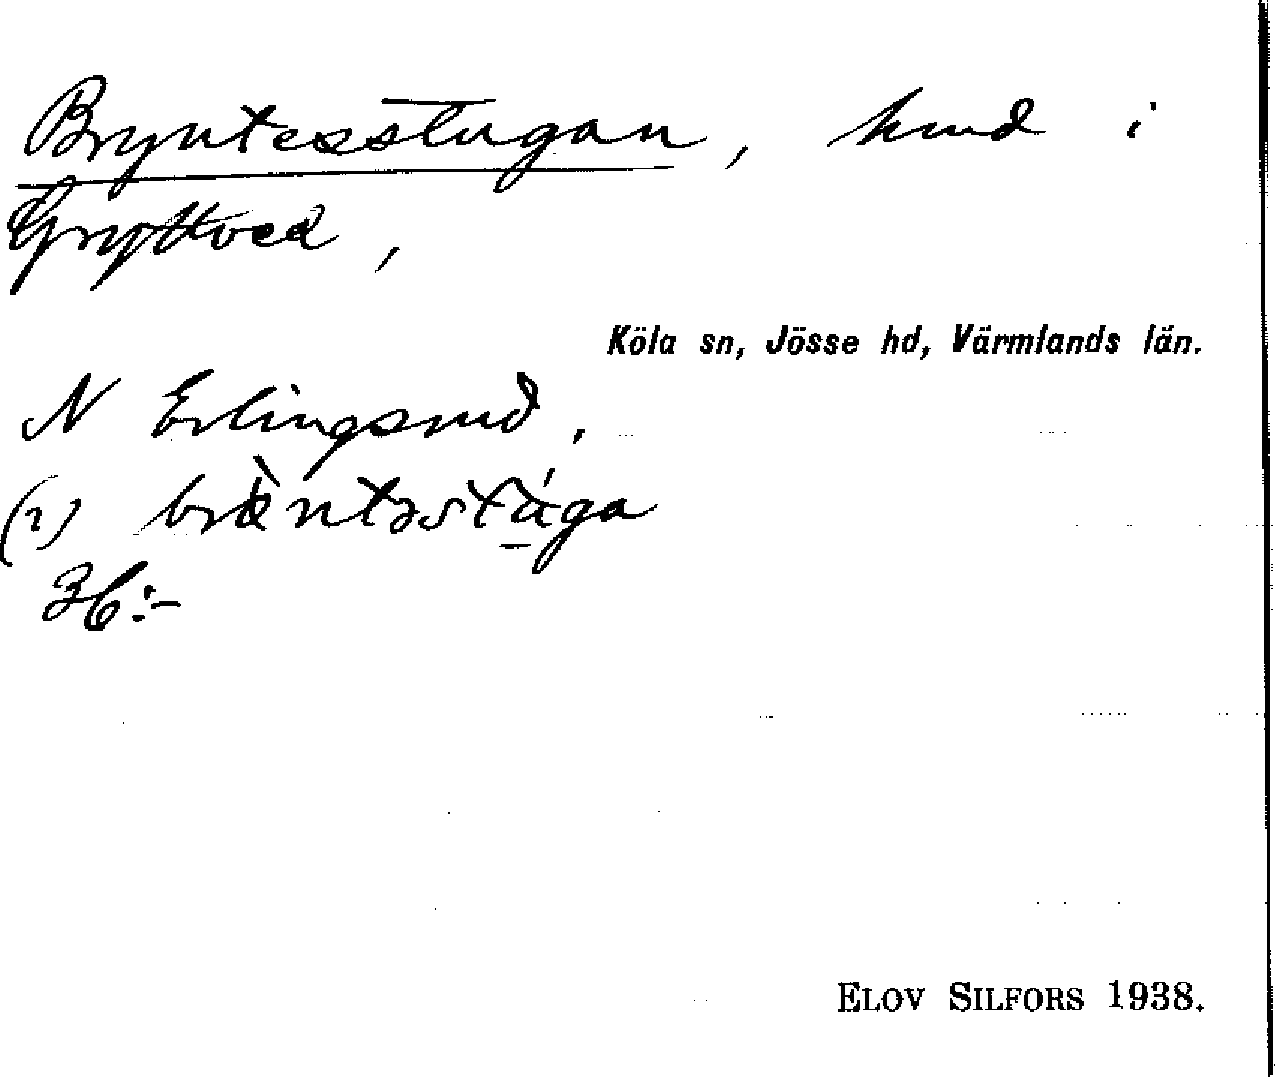 Bryntesstugan, hmd i
Gryttved,
Köla sn, Jösse hd, Värmlands län.
N Erlingsrud,
(1) bràntəstá̱ga
3b:-
ELOV SILFORS 1938.